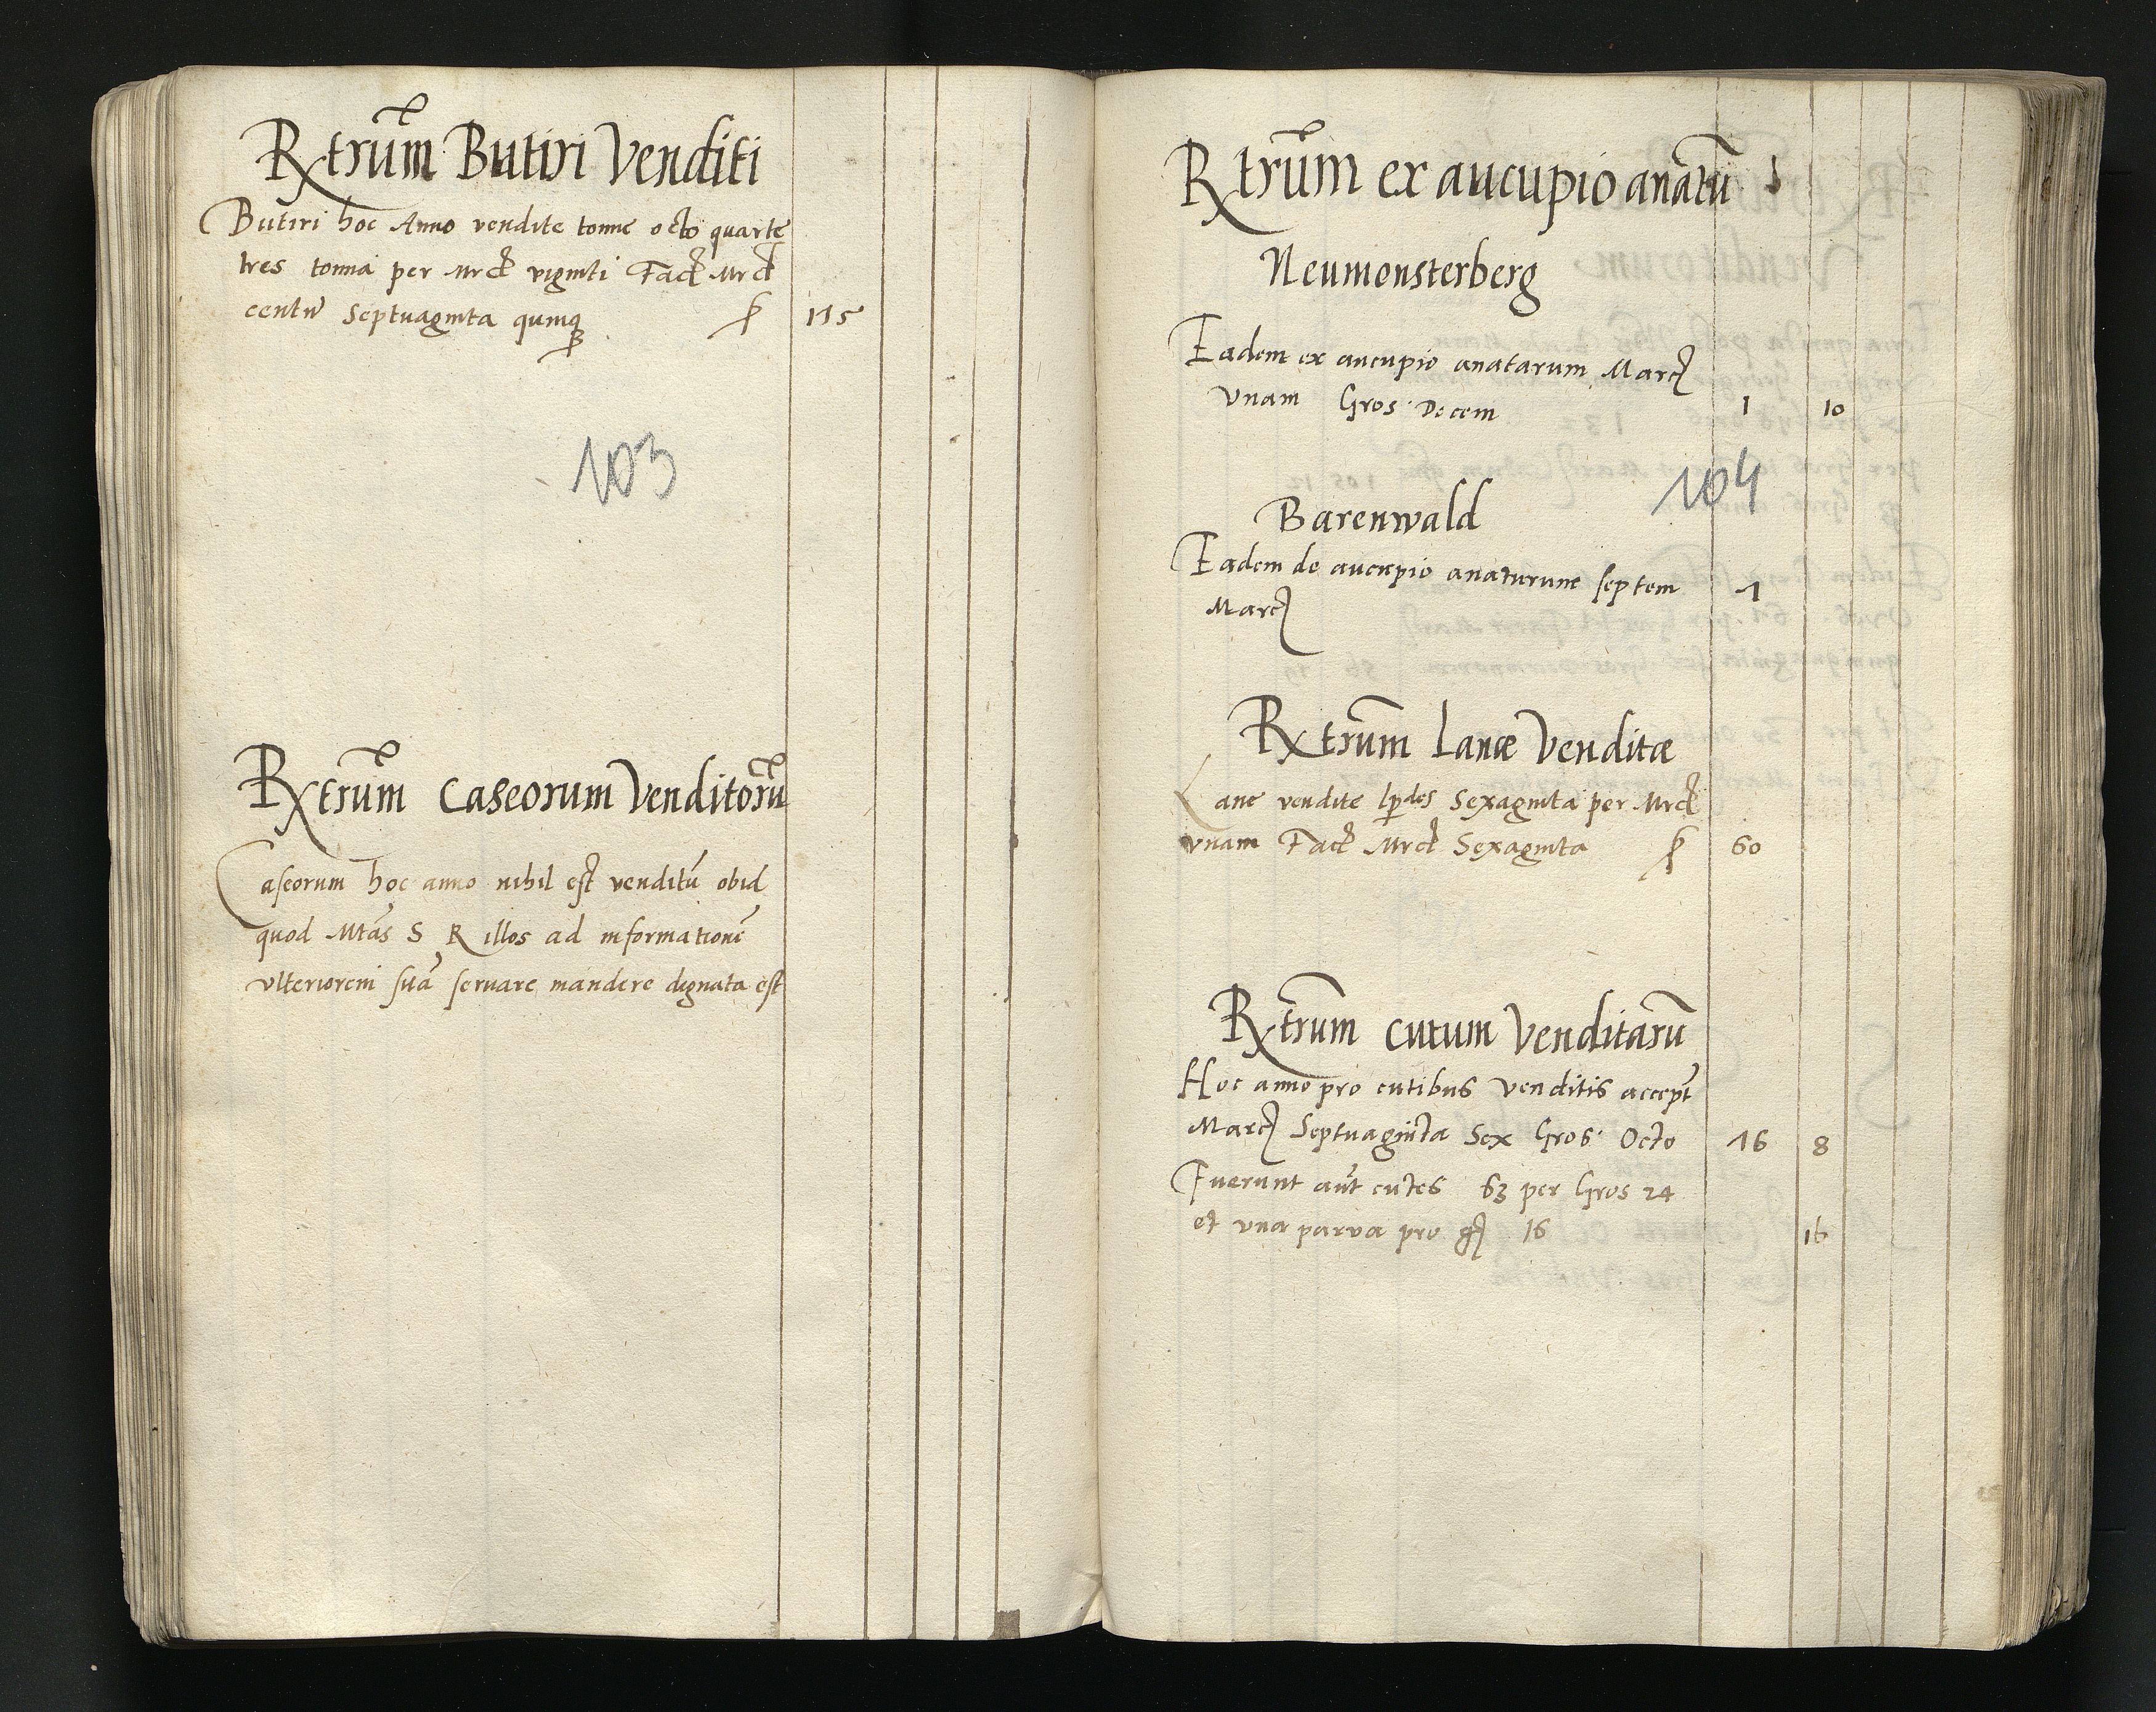 Rxtrum̃ Butiri Venditi
Butiri hoc Anno vendite tonne octo quarte
tres tonna per Mrc viginti Fac Mrc
centũ Septuaginta quinq 175
103
Rxtrum̃ Caseorum Venditorũ
Caseorum hoc anno nihil est venditũ obid
quod Mtas S R illos ad informationẽ
vlteriorem suã seruare mandere dignata est
Rxtrum̃ ex aucupio anatũ
Neumonsterberg
Eadem ex aucupio anatarum Marc
Vnam Gros Decem 1 10
104
Barenwald
Eadem de aucupio anaturum septem 7
Marc
Rxtrum̃ Lanæ Venditæ
Lane vendite lpdes Sexaginta per Mrc
vnam Fac Mrc Sexaginta 60
Rxtrum̃ cutum Venditarũ
Hoc anno pro cutibus Venditis accept
Marc Septuaginta Sex Gros Octo 76 8
Fuerunt aut̃ cutes 63 per Gros 24
et vna parva pro g 16 16